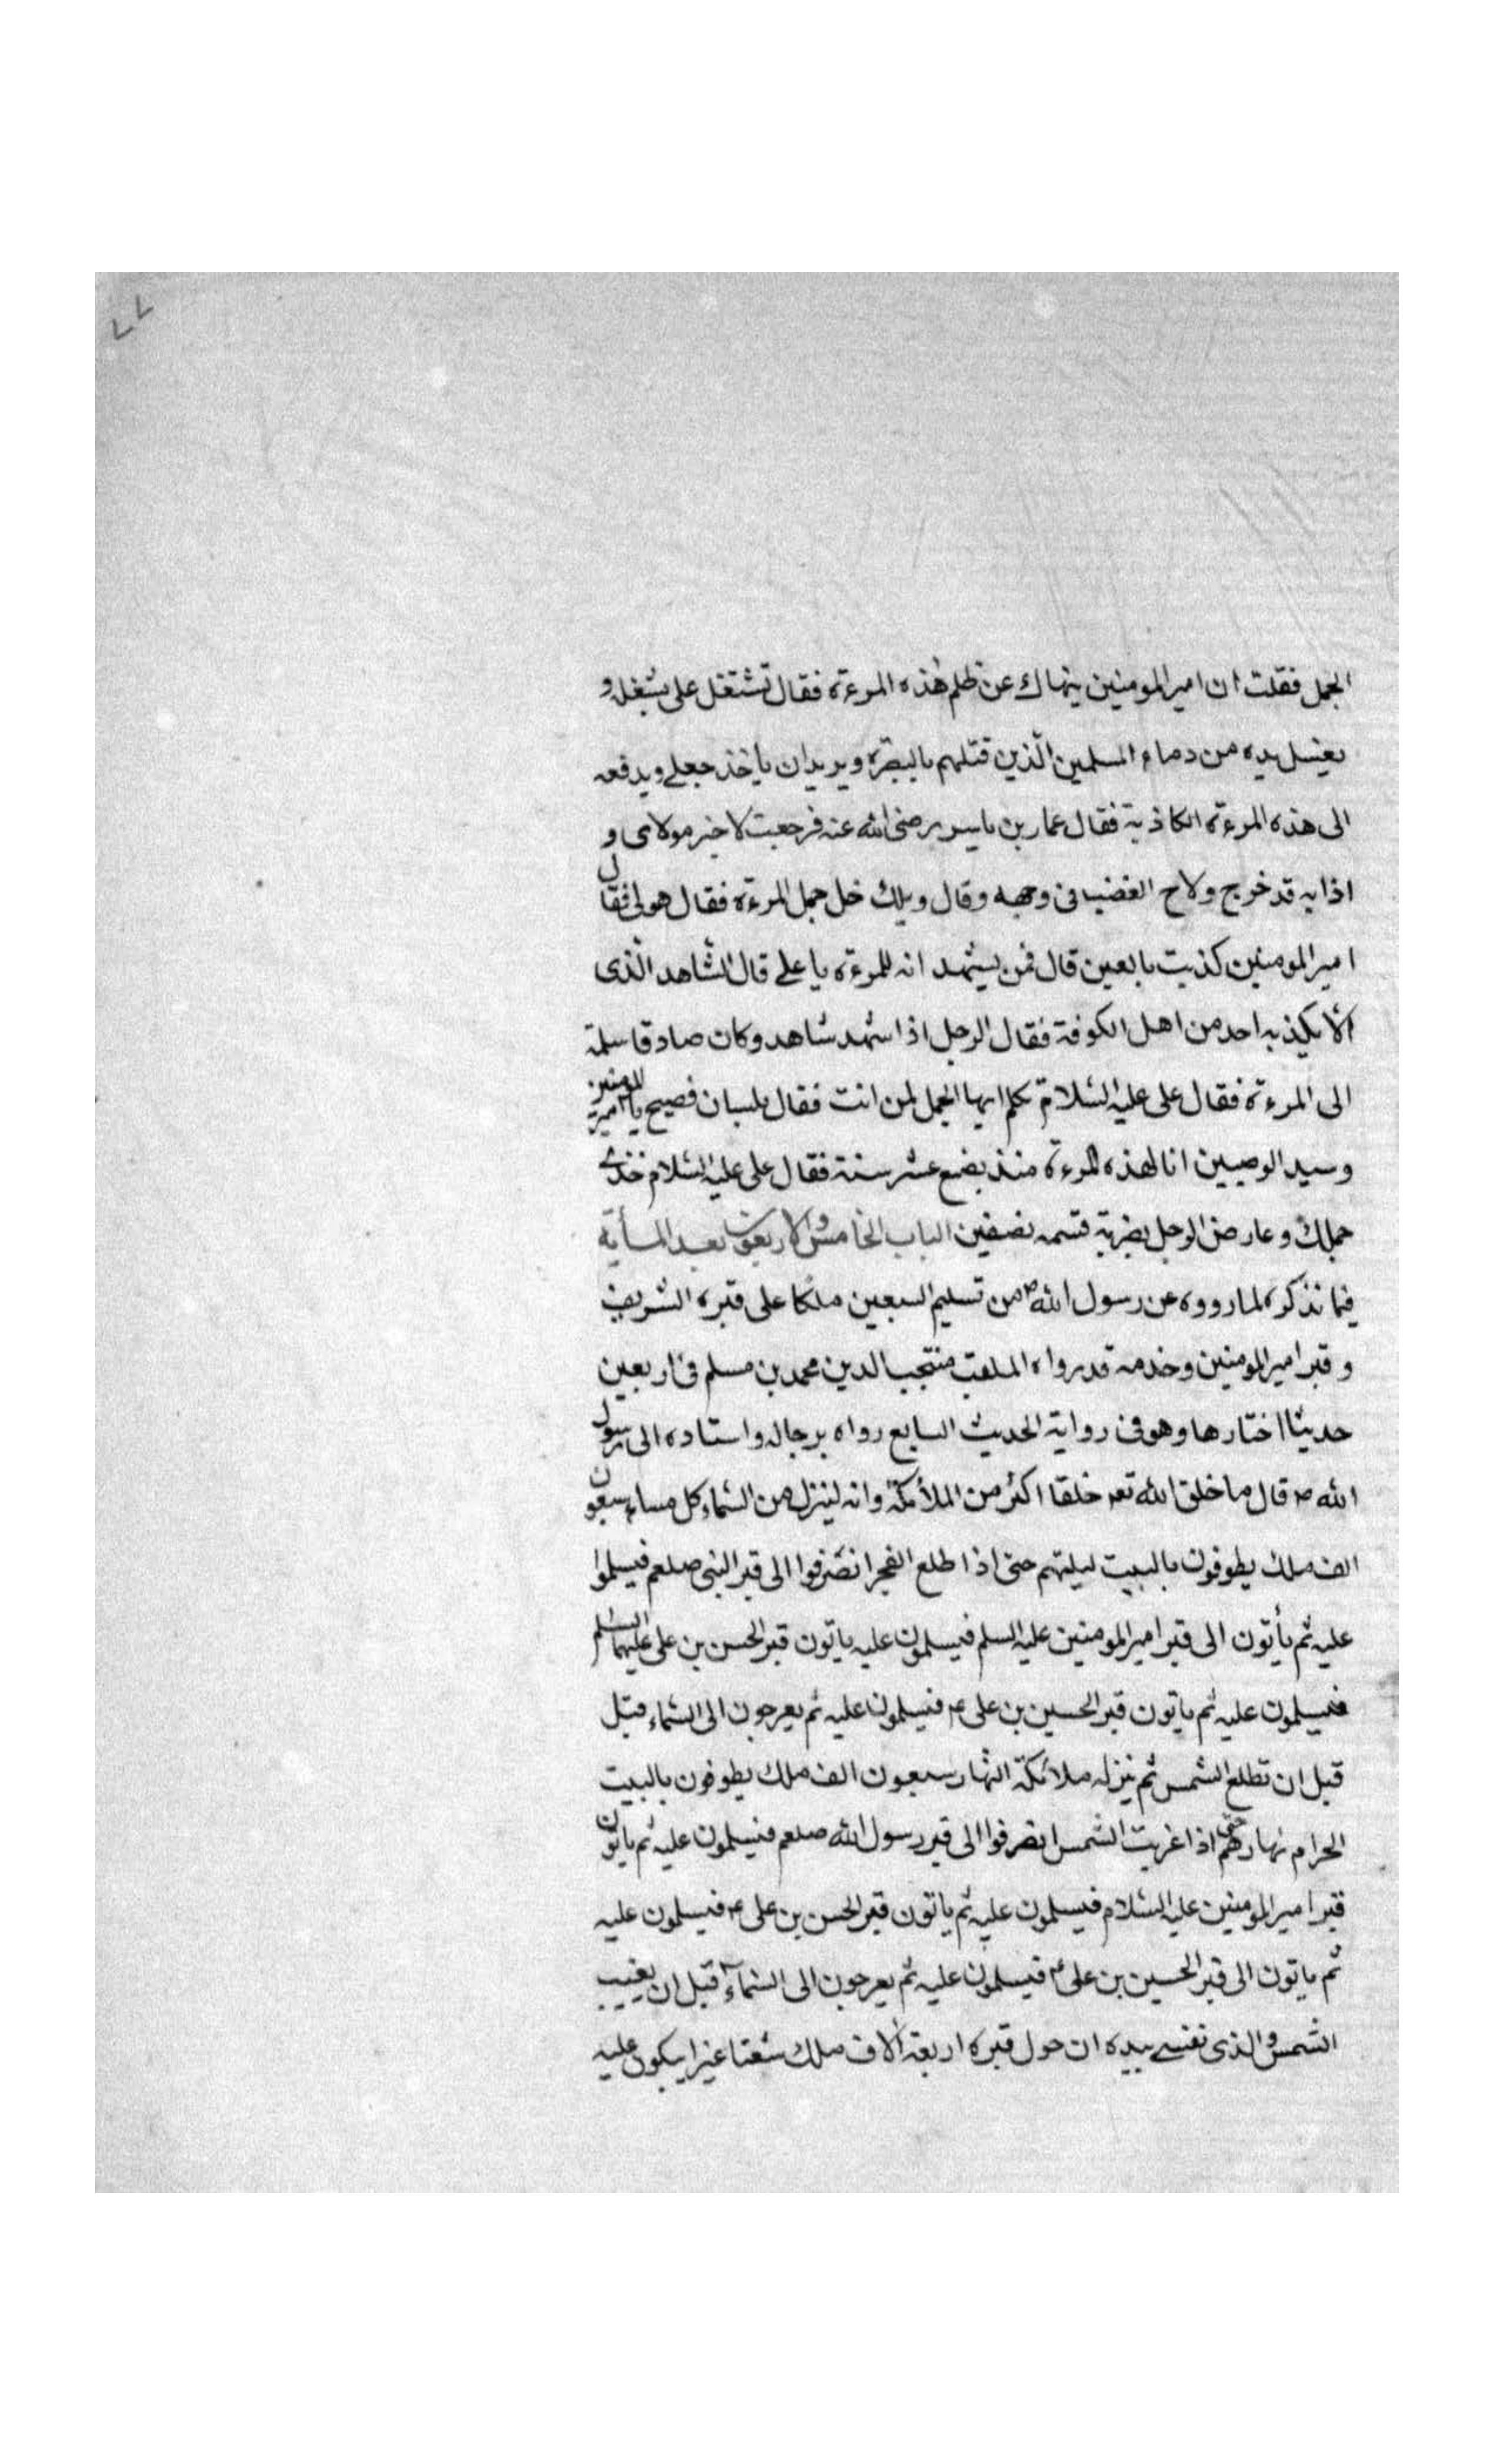 ٧٧
الجمل فقلت ان امير المومنين ينهاك عن ظلم هذه المرءة فقال تشتغل على بشغله و
يغسل يده من دماء المسلمين الّذين قتلهم بالبصرة ويريدان ياخذ جملى ويدفعه
الى هذه المرءة الكاذبة فقال عمار بن ياسر رضى الله عنه فرجعت لاخبر مولاى و
اذا به قد خرج ولاح الغضب فى وجهه وقال ويلك خل جمل المرءة فقال هو لى فقال
امير المومنين كذبت يا لعين قال فمن يشهد انه للمرءة يا على قال الشاهد الّذى
لا يكذبه احد من اهل الكوفة فقال الرجل اذا شهد شاهد وكان صادقا سلمته
الى المرءة فقال على عليه السّلام تكلم ايها الجمل لمن انت فقال بلسان فصيح يا امير المومنين
وسيد الوصيين انا لهذه المرءة منذ بضع عشر سنة فقال على عليه السّلام خذى
جملك وعارض الرجل بضربة قسمه نصفين الباب الخامس والاربعون بعد المأية
فيما نذكره لما رووه عن رسول الله ص من تسليم السبعين ملكا على قبره الشريف
وقبر امير المومنين وخدمه قد رواه الملقب منتجب الدين محمد بن مسلم فى اربعين
حديثا اختارها وهو فى رواية الحديث السابع رواه برجاله واسناده الى رسول
الله ص قال ما خلق الله تعـ خلقا اكثر من الملائكة وانه لينزل من السّماء كل مساء سبعون
الف ملك يطوفون بالبيت ليلتهم حتى اذا طلع الفجر انصرفوا الى قبر النبى صلعم فيسلموا
عليه ثم يأتون الى قبر امير المومنين عليه السلم فيسلمون عليه ياتون قبر الحسن بن على عليهما السلم
فيسلمون عليه ثم ياتون قبر الحسين بن على ع فيسلمون عليه ثم يعرجون الى السّماء قبل
قبل ان تطلع الشمس ثم ينزله ملائكة النهار سبعون الف ملك يطوفون بالبيت
الحرام نهارهم حتى اذا غربت الشمس انصرفوا الى قبر رسول الله صلعم فيسلمون عليه ثم ياتون
قبر امير المومنين عليه السّلام فيسلمون عليه ثم ياتون قبر الحسن بن على ع فيسلمون عليه
ثم ياتون الى قبر الحسين بن على ع فيسلمون عليه ثم يعرجون الى السّمآء قبل ان يغيب
الشمس والذى نفسى بيده ان حول قبره اربعة الاف ملك شعثا غبرا يبكون عليه